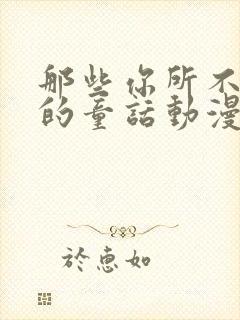 那些你所不
的童話動漫
於惠如